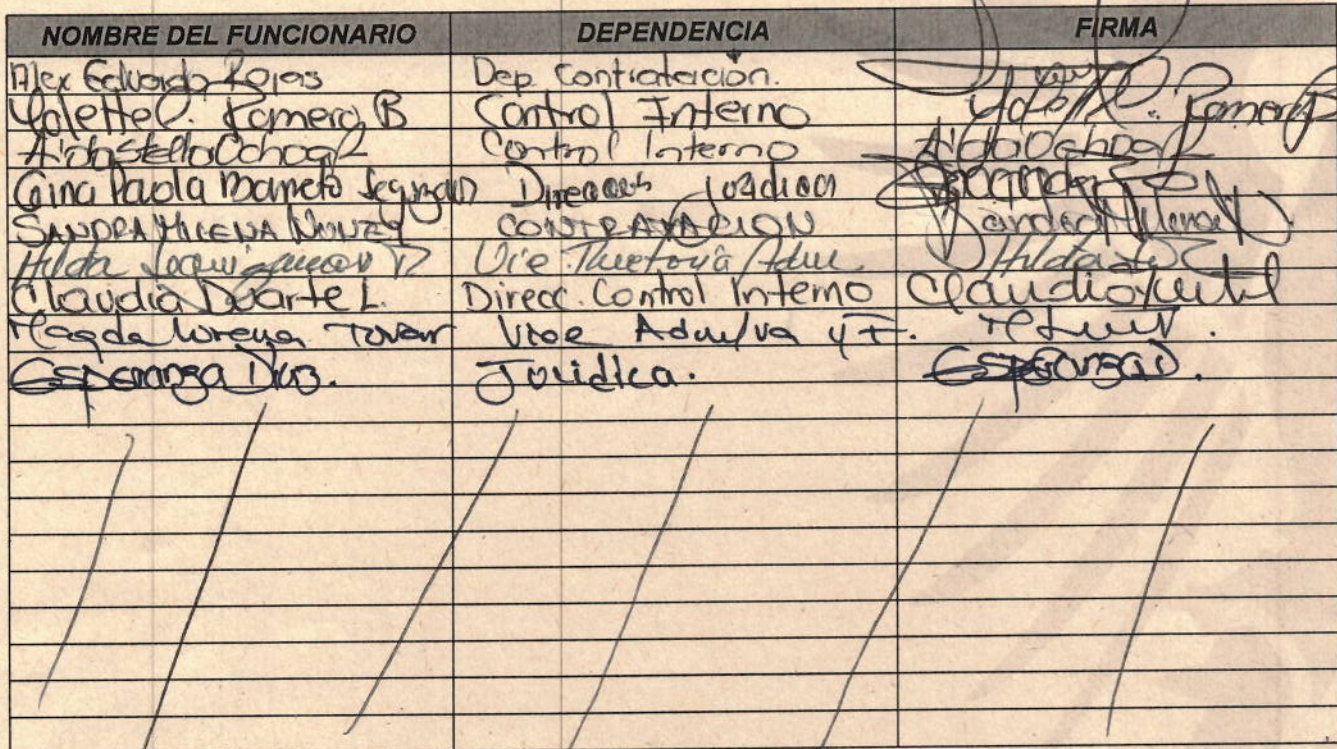 NOMBRE DEL FUNCIONARIO DEPENDENCIA FIRMA
Alex Eduardo Rojas Dep. Contratación.
Yolette C. Romero B Control Interno Romero B
Aida Stella Ochoa R Control Interno Aida Ochoa R
Gina Paola Barreto
SANDRA MILENA NUNEZ CONTRATACION Sandra Milena N.
Hilda Vice Rectoría Adm
Claudia Duarte L. Direcc. Control Interno
Magda Lorena Tovar Vice Admva y F.
Esperanza Diaz. Juridica. Esperanza D.